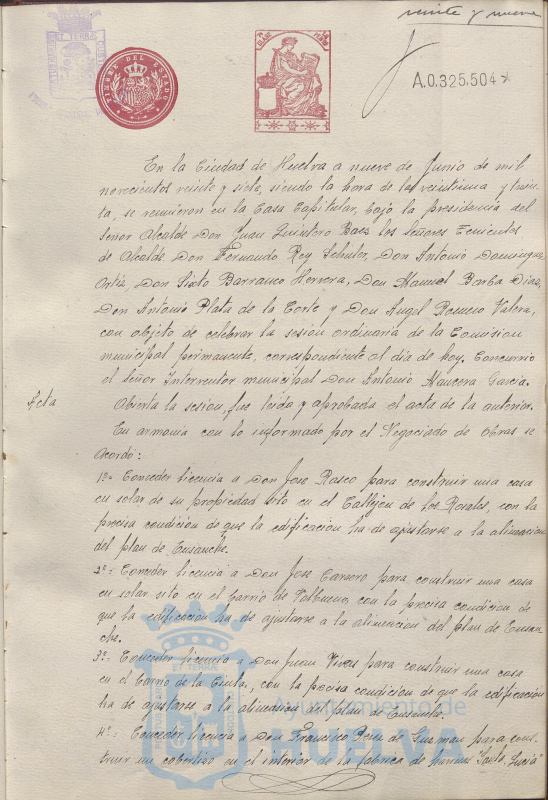 veinte y nueve
TIMBRE DEL ESTADO
A.0.325.504*
En la Ciudad de Huelva a nueve de Junio de mil
novecientos veinte y siete, siendo la hora de las veintiuna y trein-
ta, se reunieron en la Casa Capitular, bajo la presidencia del
Señor Alcalde Don Juan Quintero Baez los Señores Tenientes
de Alcalde Don Fernando Rey Don Antonio Dominguez
Ortiz, Don Sixto Barranco Herrera, Don Manuel Barba Diaz,
Don Antonio Plata de la Corte y Don Angel Romero Valera,
con objeto de celebrar la sesión ordinaria de la Comision
municipal permanente, correspondiente al dia de hoy. Concurrió
el Señor Interventor municipal Don Antonio Mancera Garcia.
Acta
Abierta la sesión, fue leida y aprobada el acta de la anterior.
En armonia con lo informado por el Negociado de Obras se
acordó:
1º= Conceder licencia a Don Jose Rasco para construir una casa
en solar de su propiedad sito en el Callejon de Los Rosales, con la
precisa condición de que la edificación ha de ajustarse a la alineacion
del plan de Ensanche.
2º= Conceder licencia a Don Jose para construir una casa
en solar sito en el barrio de Valbueno, con la precisa condicion de
que la edificación ha de ajustarse a la alineación del plan de Ensan-
che.
3º= Conceder licencia a Don Juan Vivas para construir una casa
en el barrio de la con la precisa condición de que la edificación
ha de ajustarse a la alineación del plan de Ensanche.
4º= Conceder licencia a Don Francisco Perez de Guzman para cons-
truir un cobertizo en el interior de la fabrica de harinas "Santa Lucia"
Ayuntamiento de
HUELVA